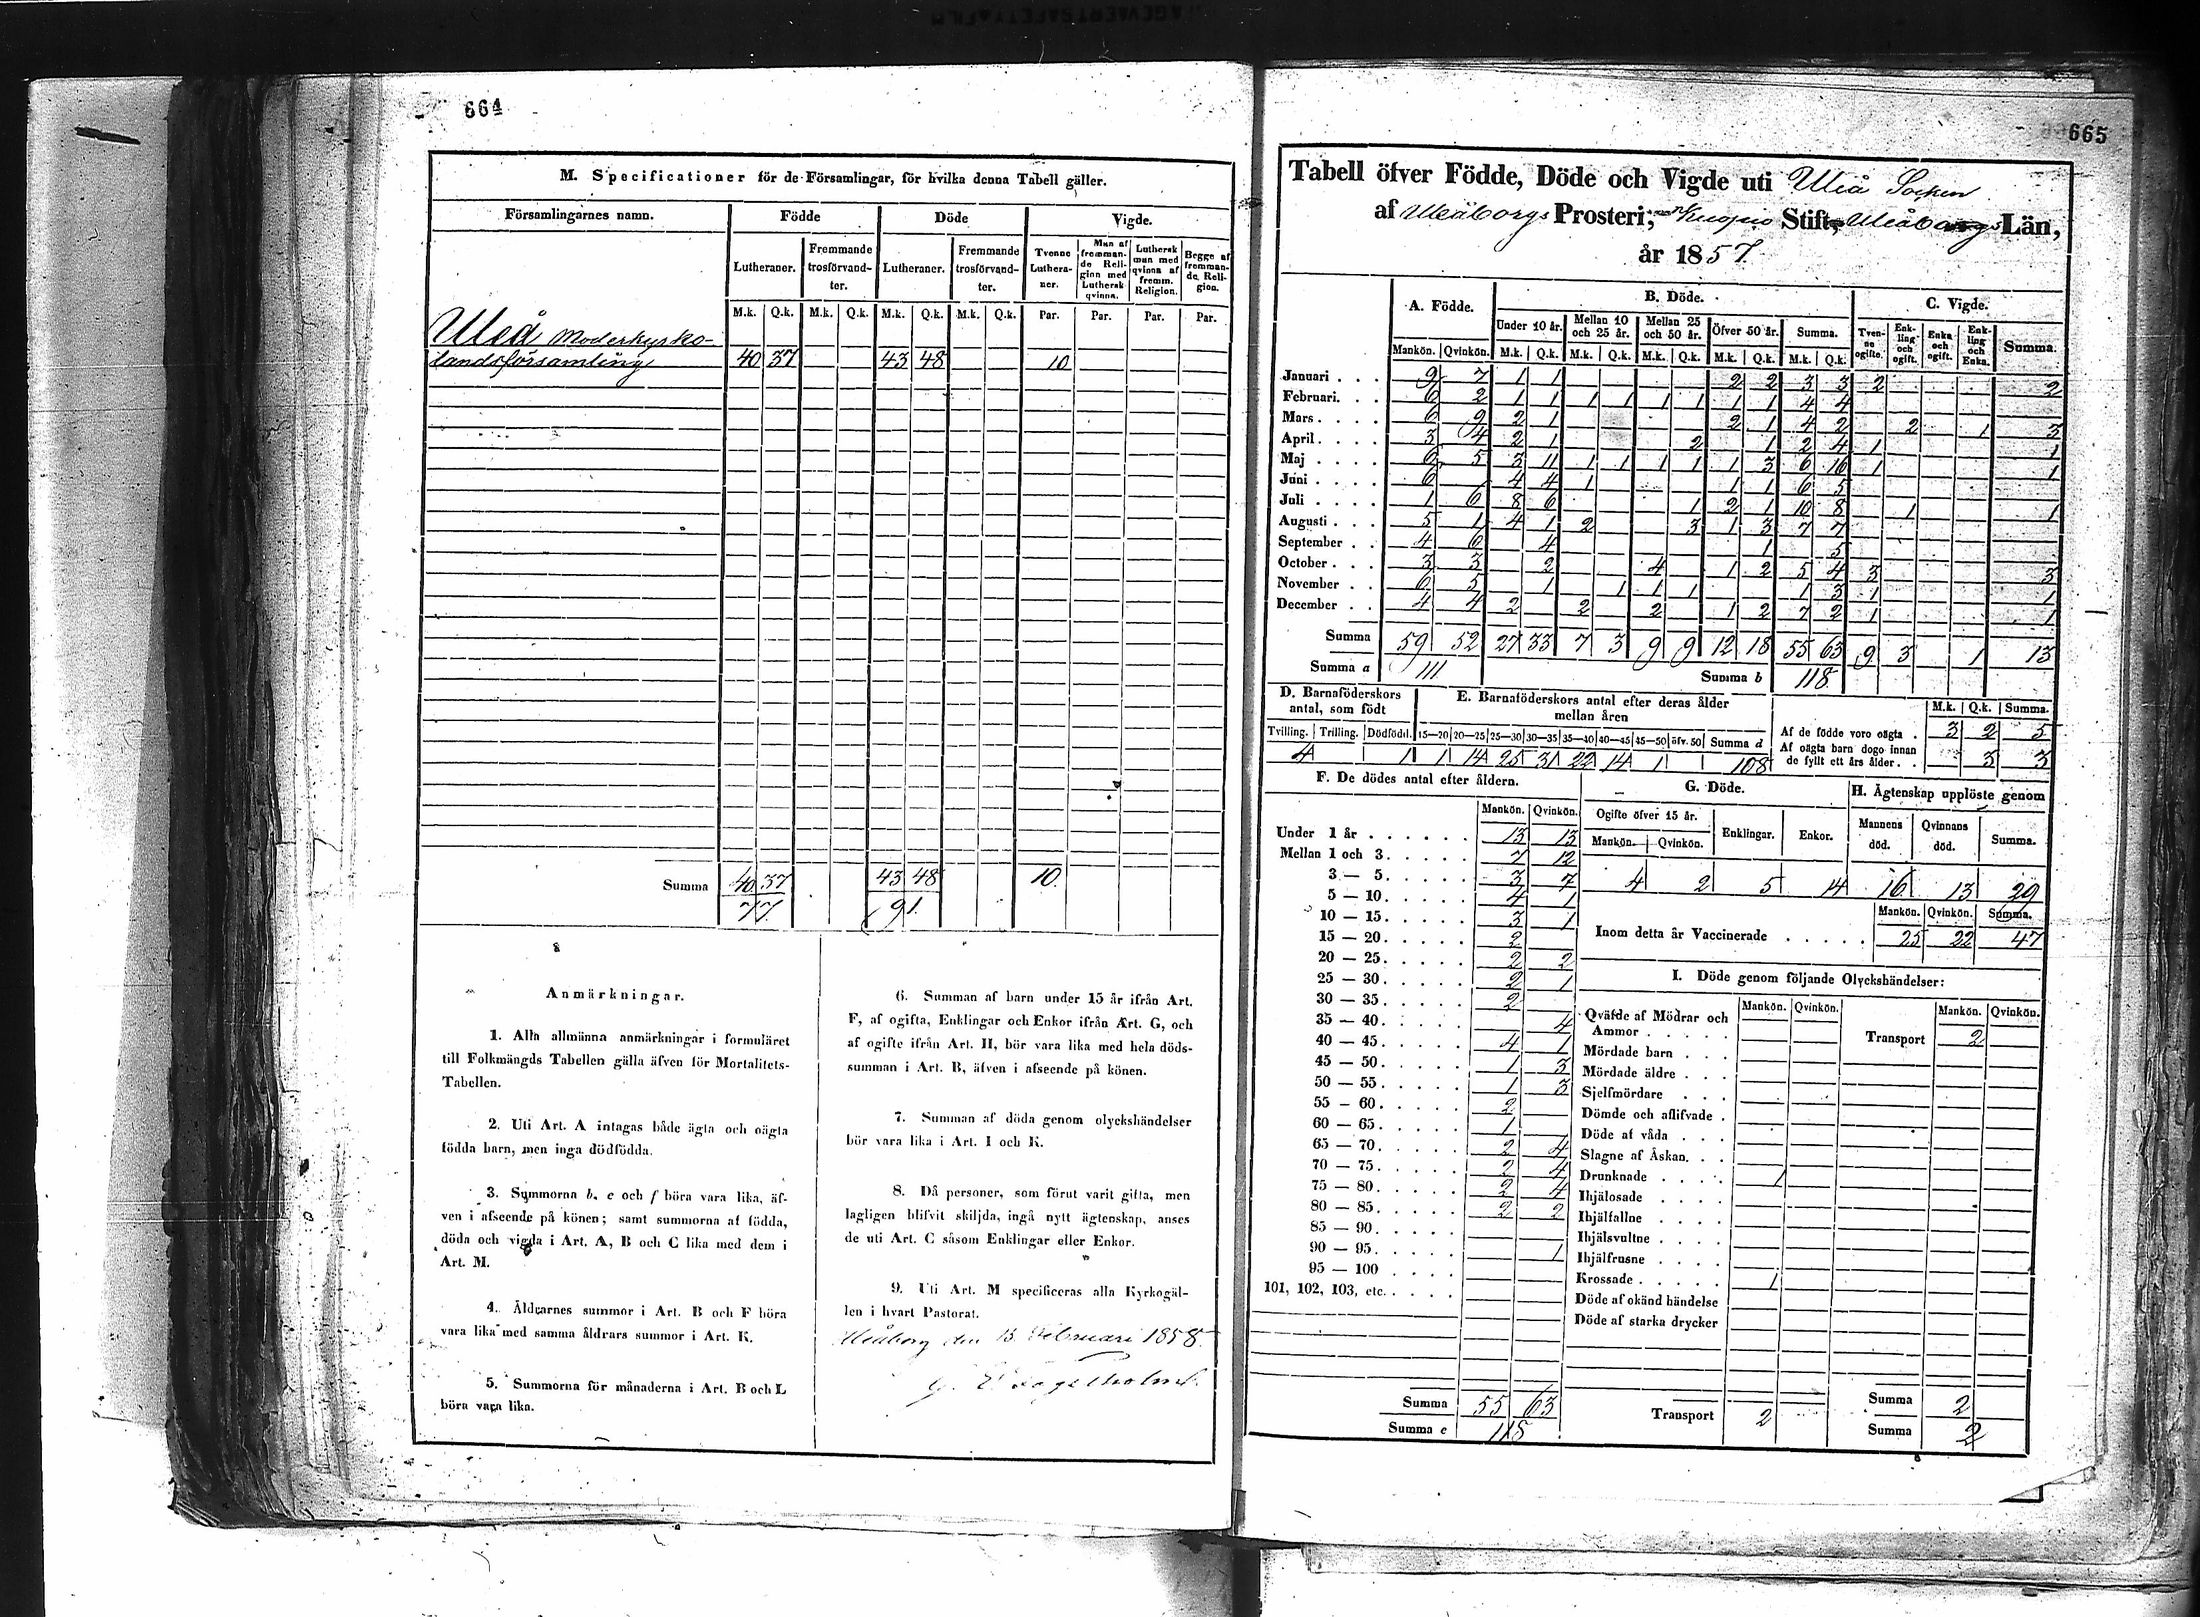 664
M. Specificationer för de Församlingar, för hvilka denna Tabell gäller.
Församlingarnes namn. Födde Döde Vigde.
Lutheraner. Fremmande trosförvandter. Lutheraner. Fremmande trosförvandter. Tvenne Lutheraner. Man af fremmande Religion med Luthersk qvinna. Luthersk man med qvinna af fremm. Religion. Begge af fremmande Religion.
M.k. Q.k. M.k. Q.k. M.k. Q.k. M.k. Q.k. Par. Par. Par. Par.
Uleå Moderkyrko-
landsförsamling 40 37 43 48 10
Summa 40 37 43 48 10.
77 91.
Anmärkningar.
1. Alla allmänna anmärkningar i formuläret
till Folkmängds Tabellen gälla äfven för Mortalitets-
Tabellen.
2. Uti Art. A intagas både ägta och oägta
födda barn, men inga dödfödda.
3. Summorna b, e och f böra vara lika, äf-
ven i afseende på könen; samt summorna af födda,
döda och vigda i Art. A, B och C lika med dem i
Art. M.
4. Åldrarnes summor i Art. B och F böra
vara lika med samma åldrars summor i Art. K.
5. Summorna för månaderna i Art. B och L
böra vara lika.
6. Summan af barn under 15 år ifrån Art.
F, af ogifta, Enklingar och Enkor ifrån Art. G, och
af ogifte ifrån Art. H, bör vara lika med hela döds-
summan i Art. B, äfven i afseende på könen.
7. Summan af döda genom olyckshändelser
bör vara lika i Art. I och K.
8. Då personer, som förut varit gifta, men
lagligen blifvit skiljda, ingå nytt ägtenskap, anses
de uti Art. C såsom Enklingar eller Enkor.
9. Uti Art. M specificeras alla Kyrkogäl-
len i hvart Pastorat.
Uleåborg den 13 Februari 1858.
665
Tabell öfver Födde, Döde och Vigde uti Uleå Socken
af Uleåborgs Prosteri, Kuopio Stift, Uleåborgs Län,
år 1857.
A. Födde. B. Döde. C. Vigde.
Under 10 år. Mellan 10 och 25 år. Mellan 25 och 50 år. Öfver 50 år. Summa. Tvenne ogifte. Enkling och ogift. Enka och ogift. Enkling och Enka. Summa.
Mankön. Qvinkön. M.k. Q.k. M.k. Q.k. M.k. Q.k. M.k. Q.k. M.k. Q.k.
Januari . . . 9 7 1 1 2 2 3 3 2 2
Februari. . . 6 2 1 1 1 1 1 1 1 1 4 4
Mars . . . . 6 9 2 1 2 1 4 2 2 1 3
April . . . . 3 4 2 1 2 1 2 4 1 1
Maj . . . . 6 5 3 11 1 1 1 1 1 3 6 16 1 1
Juni . . . . 6 4 4 1 1 1 6 5
Juli . . . . 1 6 8 6 1 2 1 10 8 1 1
Augusti . . . 5 1 4 1 2 3 1 3 7 7
September . . 4 6 4 1 5
October . . . 3 3 2 4 1 2 5 4 3 3
November . . 6 5 1 1 1 1 1 3 1 1
December . . 4 4 2 2 2 1 2 7 2 1 1
Summa 59 52 27 33 7 3 9 9 12 18 55 63 9 3 1 13
Summa a 111 Summa b 118
D. Barnaföderskors antal, som födt
E. Barnaföderskors antal efter deras ålder mellan åren
Tvilling. Trilling. Dödfödd. 15—20 20—25 25—30 30—35 35—40 40—45 45—50 öfv. 50 Summa d
4 1 1 14 25 31 22 14 1 108
M.k. Q.k. Summa.
Af de födde voro oägta . 3 2 5
Af oägta barn dogo innan
de fyllt ett års ålder . . 3 3
F. De dödes antal efter åldern.
Mankön. Qvinkön.
Under 1 år . . . . . . 13 13
Mellan 1 och 3 . . . . . 7 12
3 — 5. . . . . 3 7
5 — 10. . . . . 4 1
10 — 15. . . . . 3 1
15 — 20. . . . . 2
20 — 25. . . . . 2 2
25 — 30. . . . . 2 1
30 — 35. . . . . 2
35 — 40. . . . . 4
40 — 45. . . . . 4 1
45 — 50. . . . . 1 3
50 — 55. . . . . 1 3
55 — 60. . . . . 2
60 — 65. . . . . 1
65 — 70. . . . . 2 4
70 — 75. . . . . 2 4
75 — 80. . . . . 2 4
80 — 85. . . . . 2 2
85 — 90. . . . .
90 — 95. . . . . 1
95 — 100 . . . .
101, 102, 103, etc. . . . .
Summa 55 63
Summa e 118
G. Döde.
Ogifte öfver 15 år. Enklingar. Enkor.
Mankön. Qvinkön.
4 2 5 14
H. Ägtenskap upplöste genom
Mannens död. Qvinnans död. Summa.
16 13 29
Mankön. Qvinkön. Summa.
Inom detta år Vaccinerade . . . . . 25 22 47
I. Döde genom följande Olyckshändelser:
Mankön. Qvinkön. Mankön. Qvinkön.
Qväfde af Mödrar och
Ammor . . . . Transport 2
Mördade barn . . .
Mördade äldre . . .
Sjelfmördare . . .
Dömde och aflifvade .
Döde af våda . . .
Slagne af Åskan. . .
Drunknade . . . . 1
Ihjälosade . . . .
Ihjälfallne . . . .
Ihjälsvultne . . . .
Ihjälfrusne . . . .
Krossade . . . . . 1
Döde af okänd händelse
Döde af starka drycker
Transport 2 Summa 2
Summa 2